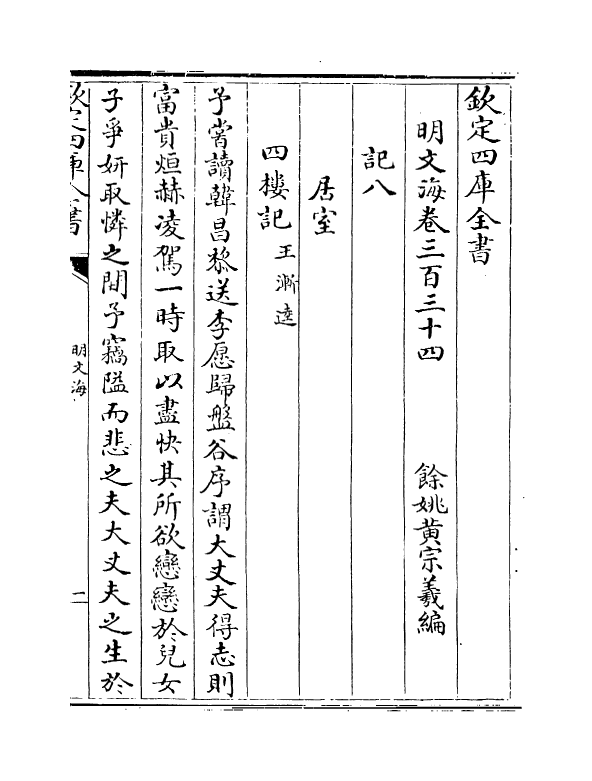 欽定四庫全書
明文海卷三百三十四 餘姚黄宗羲編
記八
居室
四樓記 王漸逵
予嘗讀韓昌黎送李愿歸盤谷序謂大丈夫得志則
富貴烜赫凌駕一時取以盡快其所欲戀戀於兒女
子爭妍取憐之間予竊隘而悲之夫大丈夫之生於
欽定四庫全書
明文海